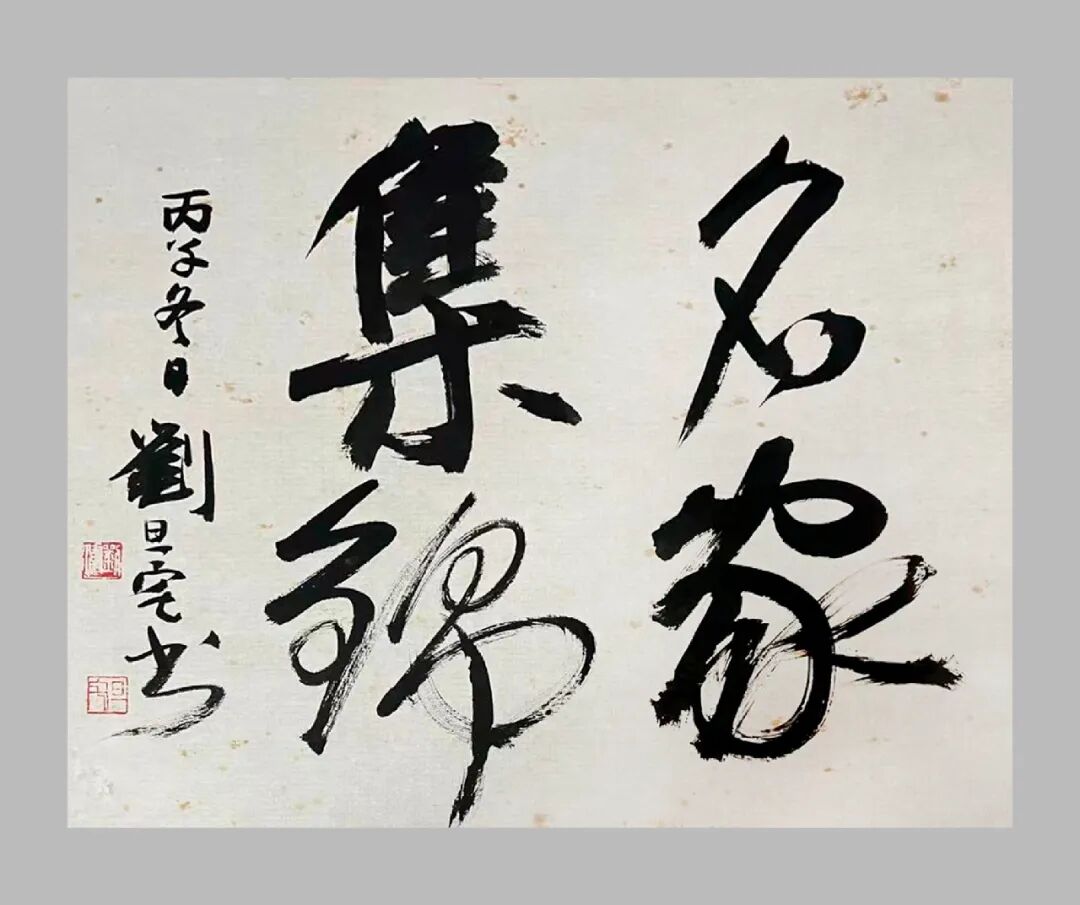 名家
集錦
丙子冬日劉旦宅書